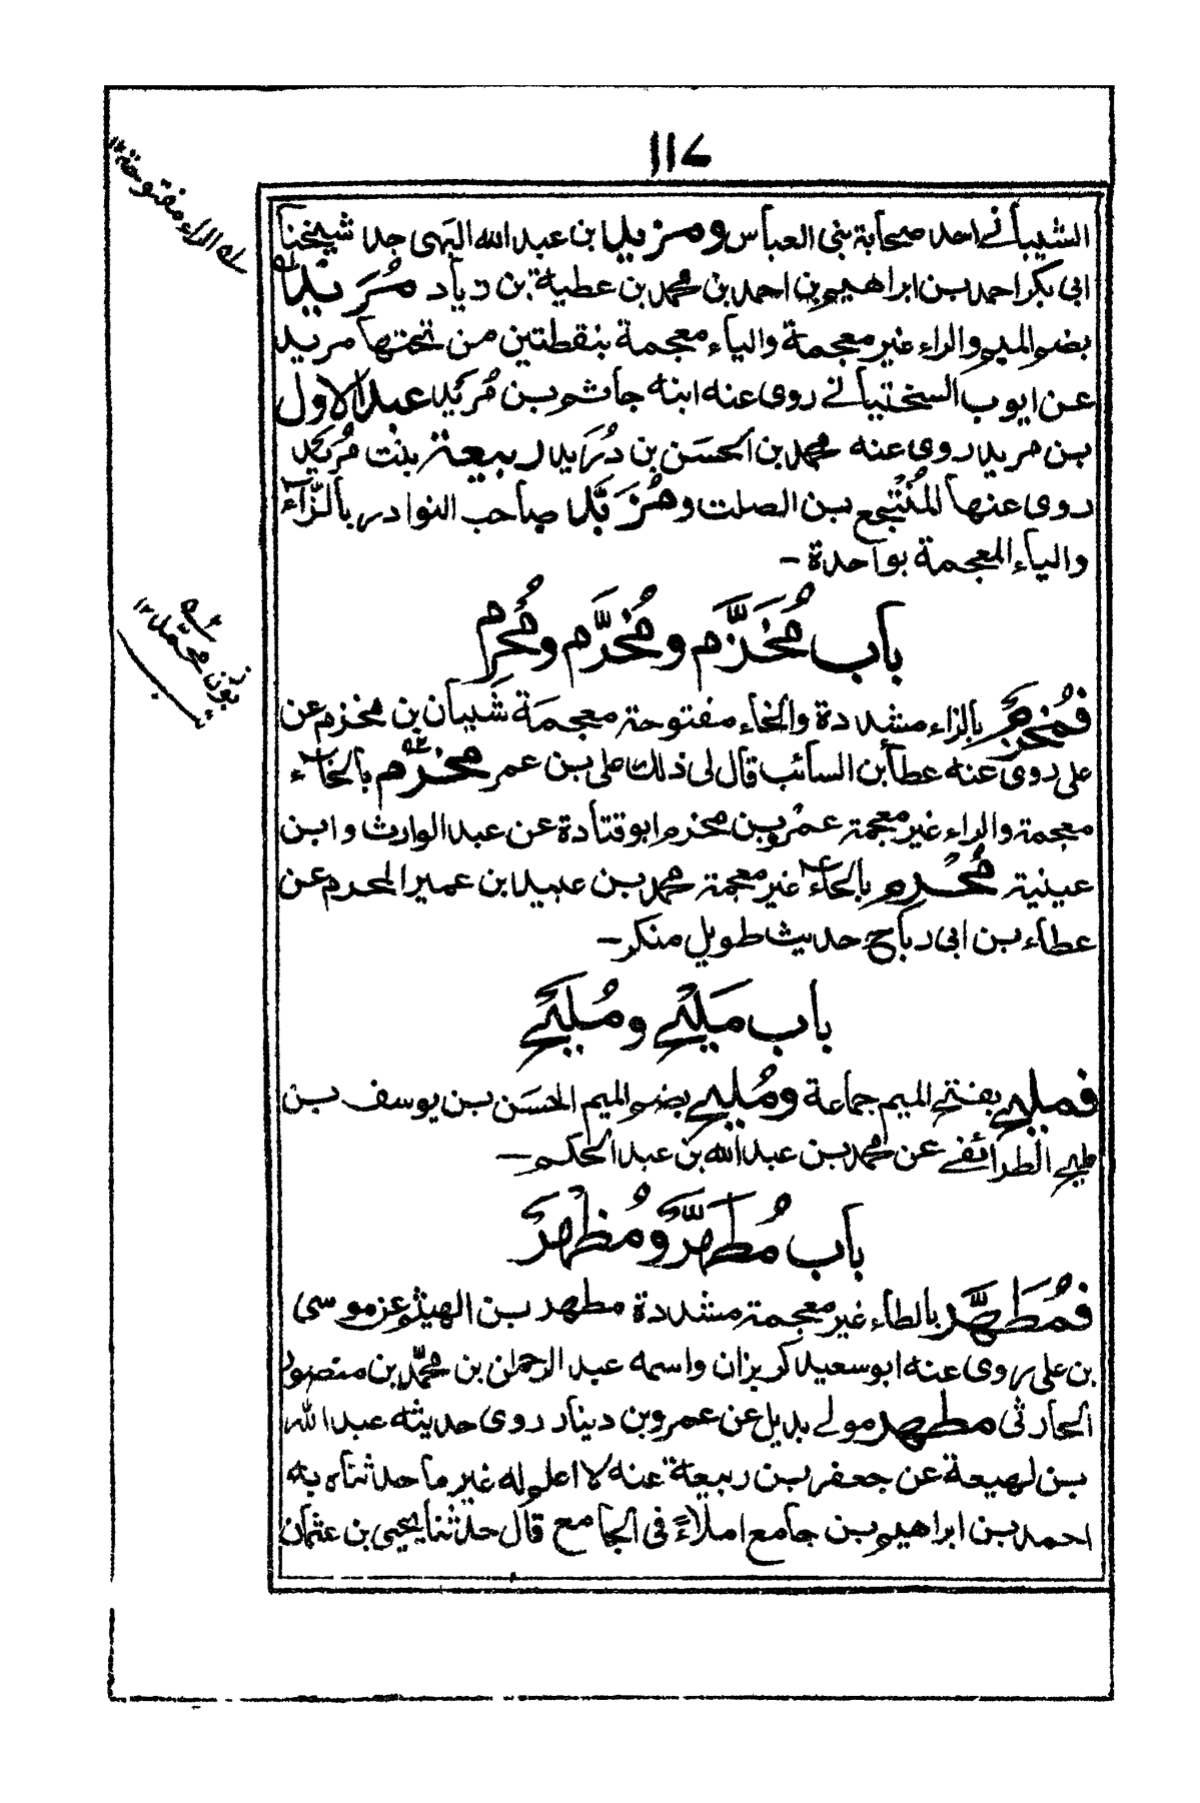 ١١٧
الشيباني احد صحابة بني العباس ومزيد ابن عبد الله البهى جد شيخنا
ابى بكر احمد بن ابراهيم بن احمد بن محمد بن عطية بن دياد مُرَيْد
بضم الميم والراء غير معجمة والياء معجمة بنقطتين من تحتها مريد
عن ايوب السختياني روى عنه ابنه جاثم بن مُرَيْد عبد الاول
بن مريد روى عنه محمد بن الحسَن بن دُرَيد ربيعة بنت مُرَيد
روى عنها المُنْتَجِع بن الصلت ومُزَبَّد صاحب النوادر بالزَّاء
والياء المعجمة بواحدة -
باب مُخَزَّم ومُخَرَّم ومُحْرِم
فمُخَزَّم بالزاء مشددة والخاء مفتوحة معجمَة شَيبان بن مخزم عن
على روى عنه عطاء بن السائب قال لى ذلك على بن عمر مخرَّم بالخاء
معجمة والراء غير معجمة عمْرو بن مخرم ابو قتادة عن عبد الوارث وابن
عيينة مُحْرِم بالحاء غير معجمة محمد بن عبيد ابن عمير المحرم عن
عطاء بن ابى رباح حديث طويل منكر -
باب مَلِيْح ومُلَيْح
فمليح بفتح الميم جماعة ومُليح بضم الميم الحسَن بن يوسف بن
مليح الطرائفي عن محمد بن عبد الله بن عبد الحكم -
باب مُطَهَّر ومُظْهِر
فمُطَهَّر بالطاء غير معجمة مشددة مطهر بن الهيثم عن موسى
بن على روى عنه ابو سعيد كريزان واسمه عبد الرحمان بن محمّد بن منصور
الحارثى مطهر مولى بديل عن عمرو بن دينار روى حديثه عبد الله
بن لهيعة عن جعفر بن ربيعة عنه لا اعلم له غير ما حدثناه به
احمد بن ابراهيم بن جامع املاءً فى الجامع قال حدثنا يحيى بن عثمان
الراء مفتوحة ١٢
بوزن محمّد ١٢